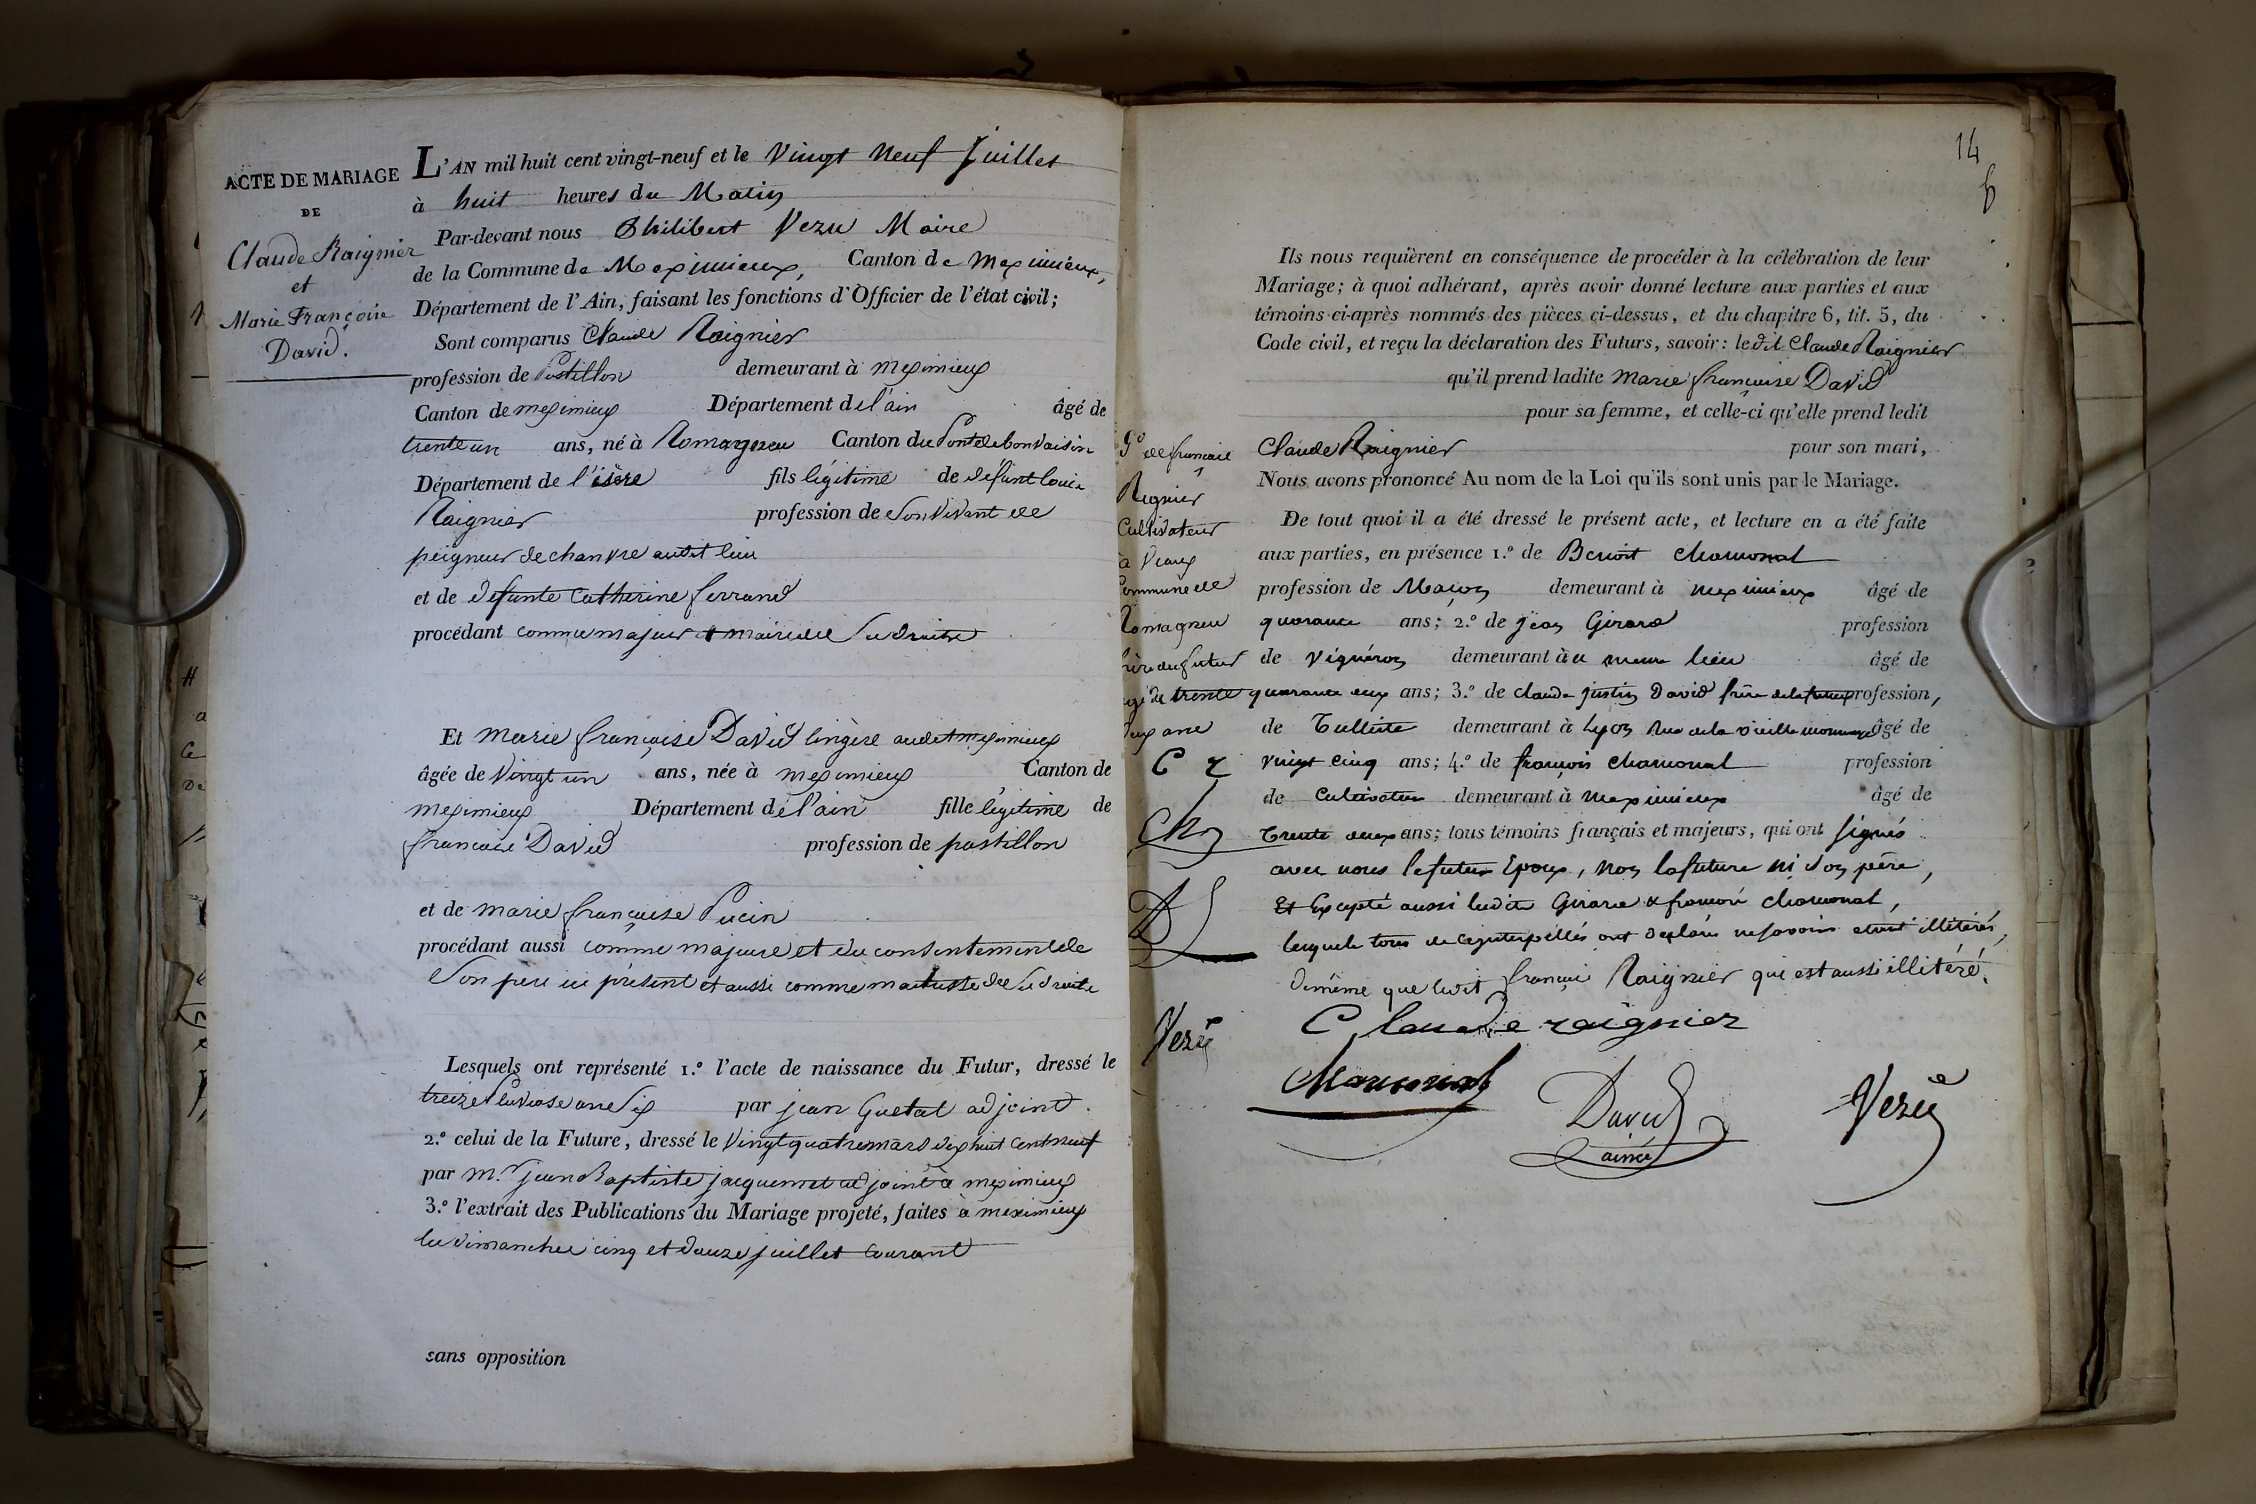 ACTE DE MARIAGE
DE
Claude Raignier
et
Marie Françoise
David.
L'AN mil huit cent vingt-neuf et le Vingt Neuf Juillet
à huit heures du Matin
Par-devant nous Philibert Vezu Maire
de la Commune de Meximieux, Canton de Meximieux,
Département de l'Ain, faisant les fonctions d'Officier de l'état civil;
Sont comparus Claude Raignier
profession de Postillon demeurant à meximieux
Canton de meximieux Département de l'ain âgé de
trente un ans, né à Romagneu Canton du Pont de bonvaisin
Département de l'isère fils légitime de défunt louis
Raignier profession de Son vivant de
peigneur de chanvre audit lieu
et de defunte Catherine ferrand
procédant comme majeur et maitre de Sedroits
Et marie françoise David lingère audit meximieux
âgée de Vingt un ans, née à meximieux Canton de
meximieux Département de l'ain fille légitime de
francoise David profession de postillon
et de marie françoise Pucin
procédant aussi comme majeure et du consentement de
Son père ici présent et aussi comme maitresse de Sedroits
Lesquels ont représenté 1.º l'acte de naissance du Futur, dressé le
treize Pluviose an Six par jean Guetat adjoint.
2.º celui de la Future, dressé le Vingt quatre mars dix huit cent neuf
par M.r jean Baptiste jacquemet adjoint à meximieux
3.º l'extrait des Publications du Mariage projeté, faites à meximieux
les dimanches cinq et douze juillet courant
sans opposition
14
6
Ils nous requièrent en conséquence de procéder à la célébration de leur
Mariage; à quoi adhérant, après avoir donné lecture aux parties et aux
témoins ci-après nommés des pièces ci-dessus, et du chapitre 6, tit. 5, du
Code civil, et reçu la déclaration des Futurs, savoir: ledit Claude Raignier
qu'il prend ladite marie françoise David
pour sa femme, et celle-ci qu'elle prend ledit
Claude Raignier pour son mari,
Nous avons prononcé Au nom de la Loi qu'ils sont unis par le Mariage.
De tout quoi il a été dressé le présent acte, et lecture en a été faite
aux parties, en présence 1.º de Benoit Chamonal
profession de Maçon demeurant à meximieux âgé de
quarante ans; 2.º de jean Girard profession
de Vigneron demeurant au meme lieu âgé de
quarante deux ans; 3.º de claude justin David frère de la future profession,
de Tulliste demeurant à Lyon Rue de la Vieille monnaye âgé de
vingt cinq ans; 4.º de françois Chamonal profession
de Cultivateur demeurant à meximieux âgé de
trente deux ans; tous témoins français et majeurs, qui ont signés
avec nous le futur Epoux, non la future ni son père,
Et Excepté aussi ledits Girard & françois Chamonal,
lesquels tous de ce interpellés ont déclarés ne savoir etant illitérés,
demême que ledit françois Raignier qui est aussi illitéré.
5º de françois
Regnier
Cultivateur
à Vraux
Commune de
Romagneu
frère du futur
agé de trente
deux ans
C r
Ch
D
Vezu
Claude raignier
Chamonal
David
ainé
Vezu